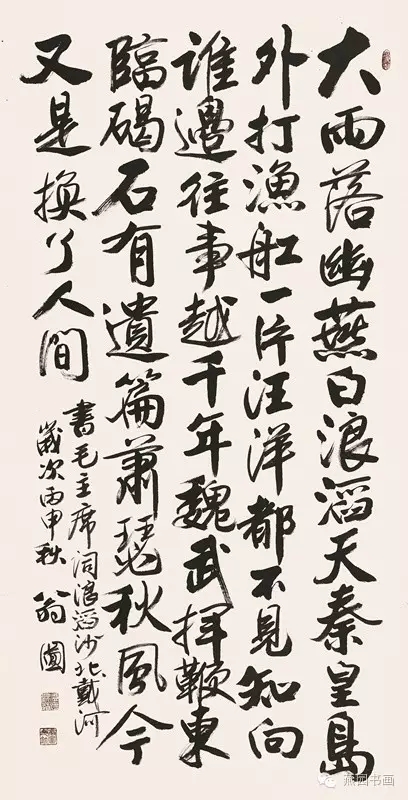 大雨落幽燕白浪滔天秦皇島
外打漁舡一片汪洋都不見知向
誰邊往事越千年魏武揮鞭東
臨碣石有遺篇蕭瑟秋風今
又是換了人間
書毛主席詞浪滔沙北戴河
歲次丙申秋 翁圖
燕四书画